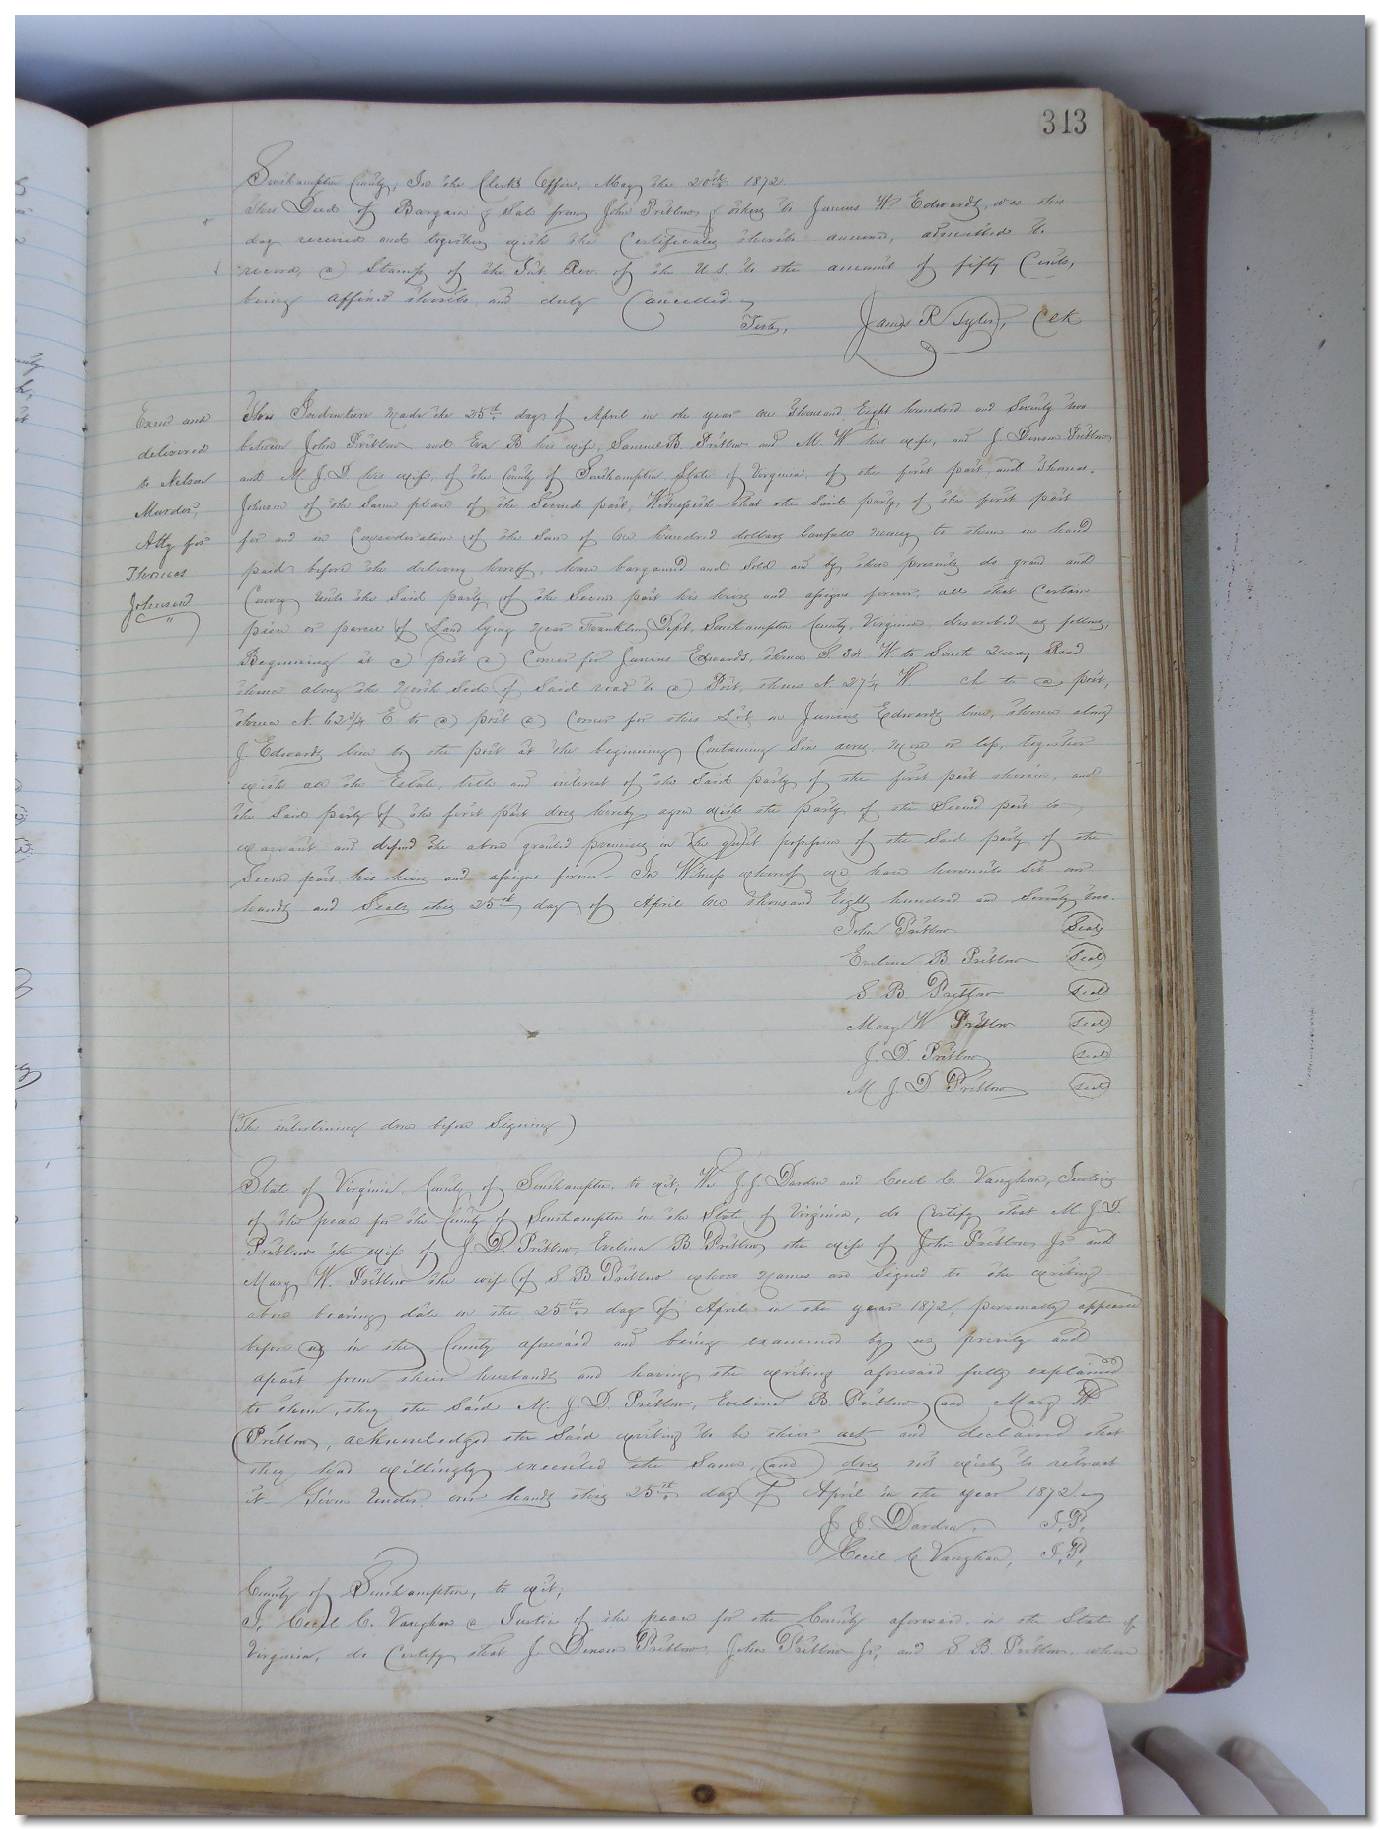 313
Southampton County, In the Clerk's Office, May the 20th 1872.
This Deed of Bargain & Sale from John Pretlow & others to Junius W Edwards, was this
day received and together with the Certificates thereto annexed, admitted to
record, a Stamp of the Int. Rev. of the U.S. to the amount of fifty Cents,
being affixed thereto and duly Cancelled.
Teste, James R Tyler, Clk
Exmd and
delivered
to Nelson
Murder,
Atty for
Thomas
Johnson
This Indenture made the 25th day of April in the year one thousand Eight hundred and Seventy two
between John Pretlow and Eva B his wife, Samuel B. Pretlow and M. W his wife, and J. Denson Pretlow
and M. J. D his wife, of the County of Southampton State of Virginia, of the first part and Thomas
Johnson of the Same place of the Second part, Witnesseth that the Said party, of the first part
for and in Consideration of the Sum of One hundred dollars lawful money to them in hand
paid before the delivery hereof, have bargained and Sold and by these presents do grant and
Convey unto the Said party of the Second part his heirs and assigns forever, all that Certain
piece or parcel of Land lying near Franklin Depot, Southampton County, Virginia, described as follows,
Beginning at a post a Corner for Junius Edwards, thence S. 34 W. to South Quay Road
thence along the North Side of Said road to a Post, thence N. 27¼ W ch to a post,
thence N. 62¾ E to a post a Corner for this Lot on Junius Edwards line, thence along
J. Edwards line to the post at the beginning, Containing Six acres more or less, together
with all the Estate, title and interest of the Said party of the first part therein, and
the Said party of the first part does hereby agree with the party of the Second part to
warrant and defend the above granted premises in the quiet possession of the Said party of the
Second part, his heirs and assigns forever. In Witness whereof we have hereunto Set our
hands and Seals this 25th day of April One thousand Eight hundred and Seventy two.
John Pretlow Seal
Evelina B Pretlow Seal
S. B. Pretlow Seal
Mary W Pretlow Seal
J. D. Pretlow Seal
M. J. D Pretlow Seal
(The interlining done before Signing)
State of Virginia, County of Southampton, to wit, We J. J. Darden and Cecil C. Vaughan, Justices
of the peace for the County of Southampton in the State of Virginia, do Certify that M J. D.
Pretlow the wife of J. D. Pretlow, Evelina B. Pretlow the wife of John Pretlow Jr and
Mary W. Pretlow the wife of S B Pretlow whose Names are Signed to the writing
above bearing date on the 25th day of April in the year 1872, personally appeared
before us in the County aforesaid and being examined by us privily and
apart from their husbands and having the writing aforesaid fully explained
to them, they the Said M. J. D. Pretlow, Evelina B. Pretlow, and Mary W
Pretlow, acknowledged the Said writing to be their act and declared that
they had willingly executed the Same, and does not wish to retract
it. Given Under our hands this 25th day of April in the year 1872.
J. J. Darden, J.P.
Cecil C Vaughan, J.P.
County of Southampton, to wit,
I, Cecil C. Vaughan a Justice of the peace for the County aforesaid, in the State of
Virginia, do Certify that J. Denson Pretlow, John Pretlow Jr, and S. B. Pretlow, whose